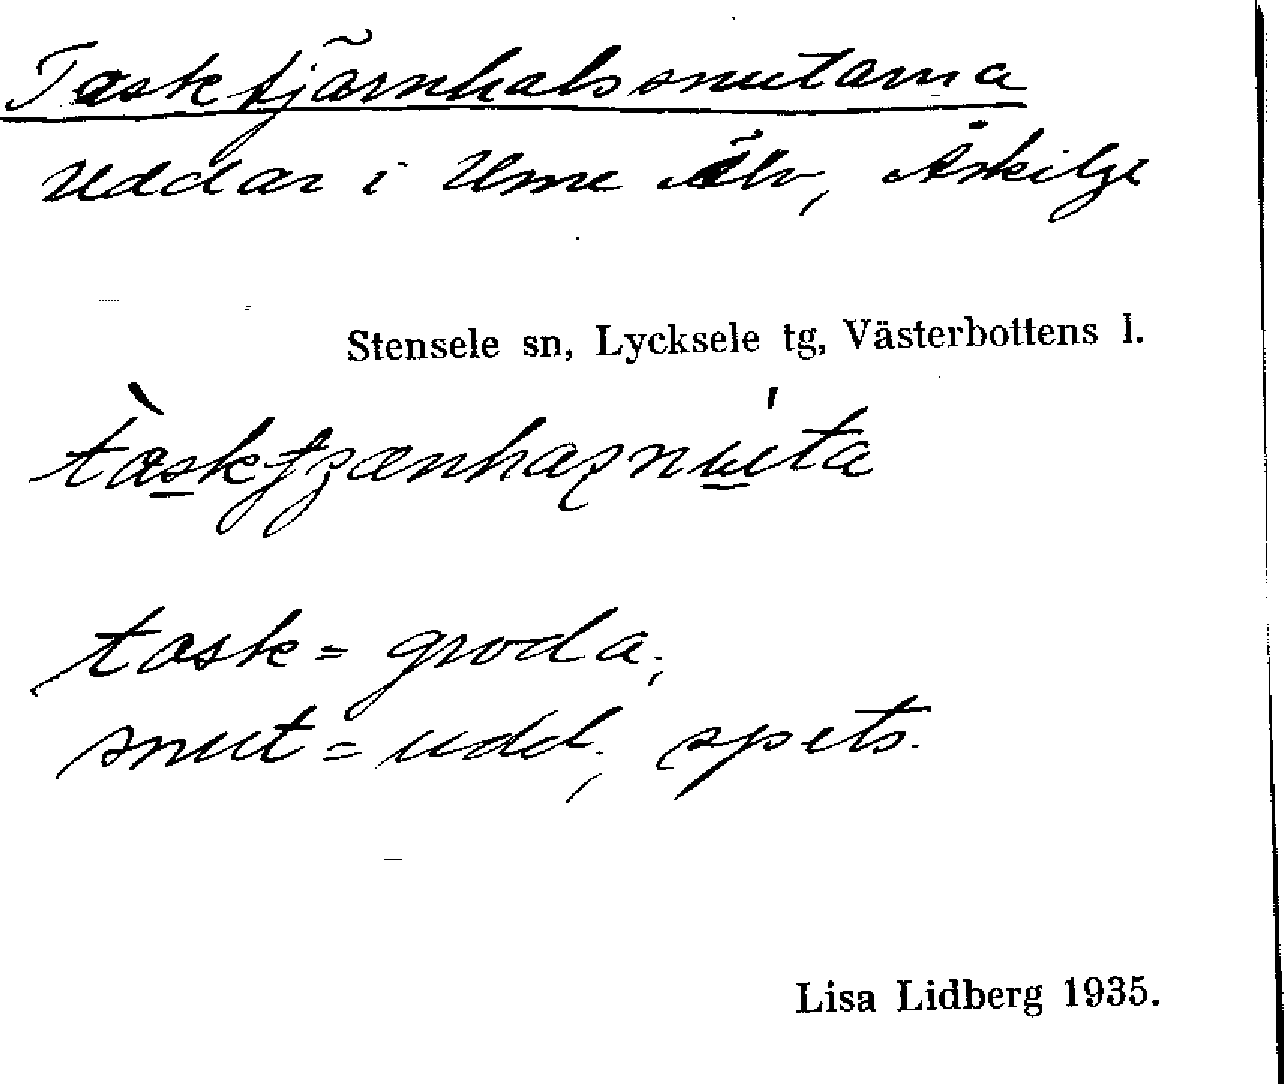 Taskfjärnhalssnutarna
Uddar i Ume Älv, Åskilje
Stensele sn, Lycksele tg, Västerbottens l.
task = groda;
snut = udd, spets.
Lisa Lidberg 1935.